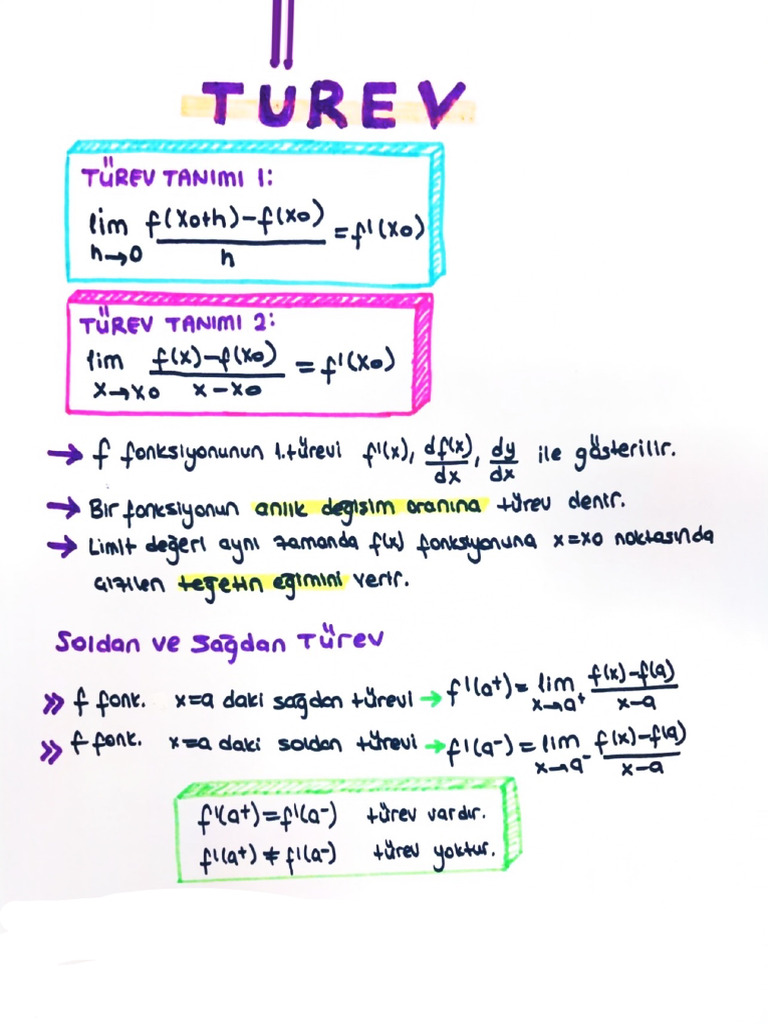 TÜREV
TÜREV TANIMI 1:
lim f(x0+h)-f(x0) = f'(x0)
h→0 h
TÜREV TANIMI 2:
lim f(x)-f(x0) = f'(x0)
x→x0 x-x0
→ f fonksiyonunun 1.türevi f'(x), df(x)/dx, dy/dx ile gösterilir.
→ Bir fonksiyonun anlık değişim oranına türev denir.
→ Limit değeri aynı zamanda f(x) fonksiyonuna x=x0 noktasında
çizilen teğetin eğimini verir.
Soldan ve Sağdan Türev
» f fonk. x=a daki sağdan türevi → f'(a⁺) = lim f(x)-f(a)
x→a⁺ x-a
» f fonk. x=a daki soldan türevi → f'(a⁻) = lim f(x)-f(a)
x→a⁻ x-a
f'(a⁺)=f'(a⁻) türev vardır.
f'(a⁺)≠f'(a⁻) türev yoktur.